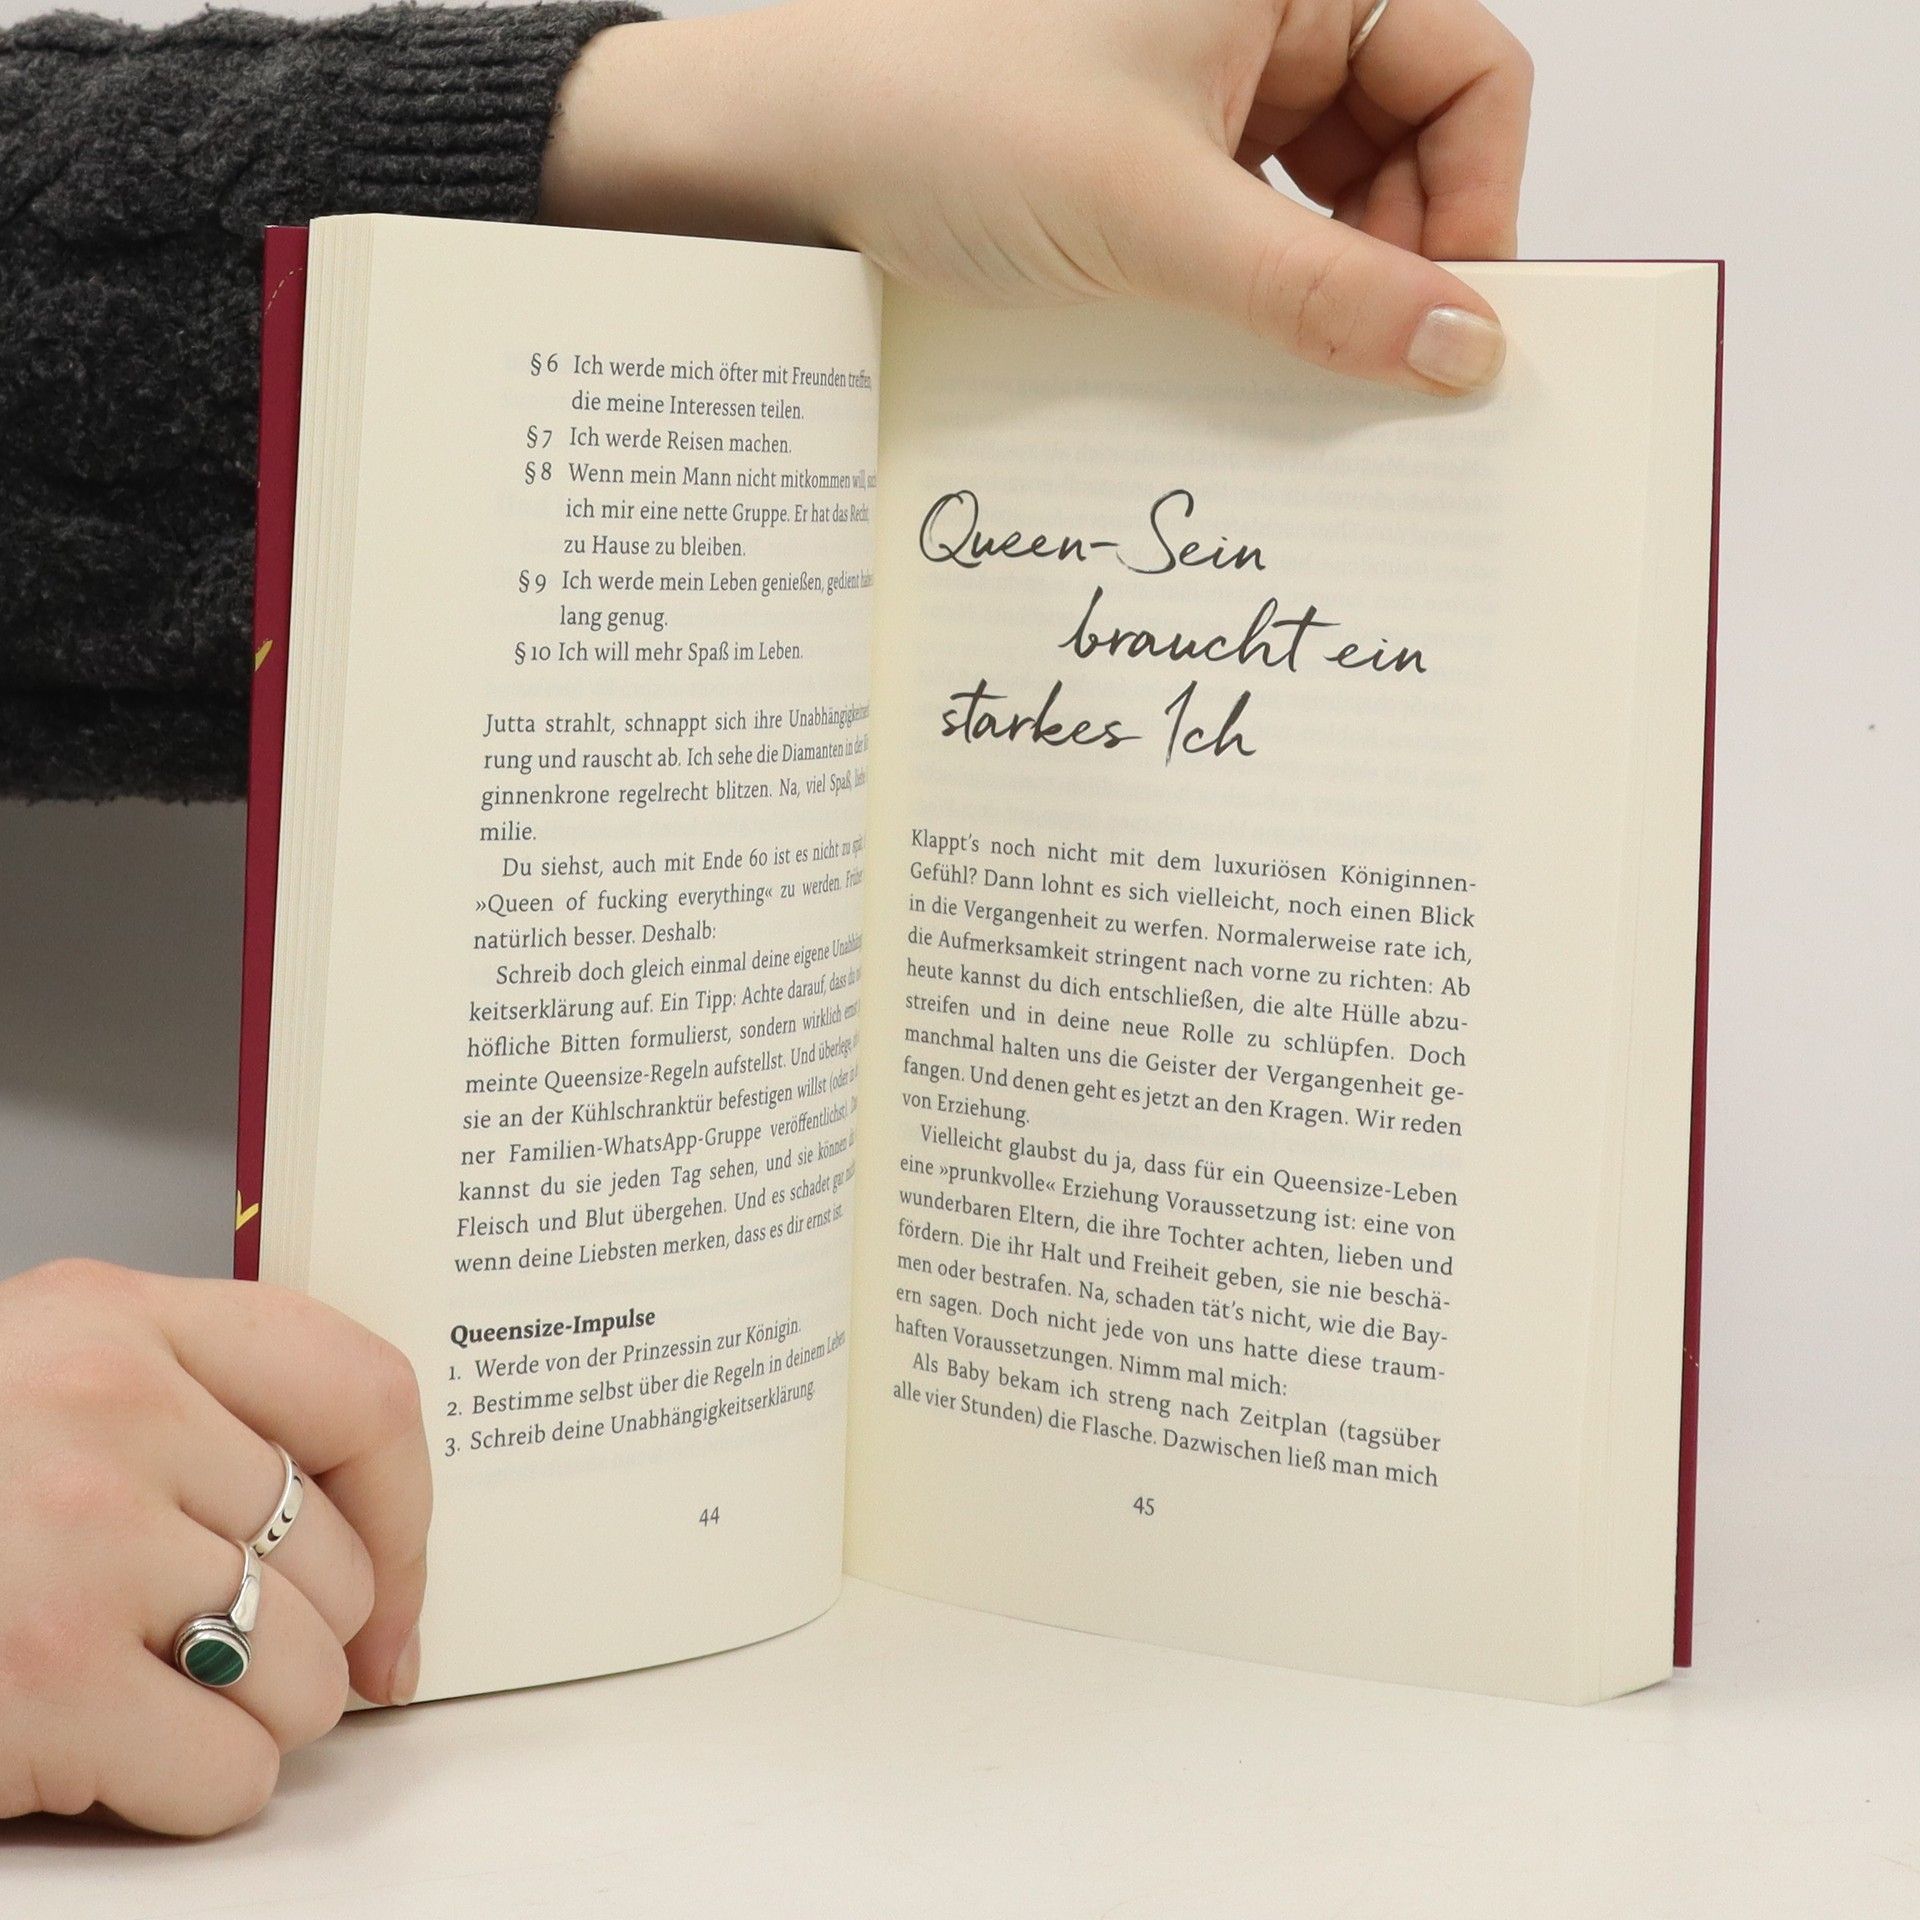 § 6 Ich werde mich öfter mit Freunden treffen,
die meine Interessen teilen.
§ 7 Ich werde Reisen machen.
§ 8 Wenn mein Mann nicht mitkommen will,
ich mir eine nette Gruppe. Er hat das Recht,
zu Hause zu bleiben.
§ 9 Ich werde mein Leben genießen, gedient
lang genug.
§ 10 Ich will mehr Spaß im Leben.
Jutta strahlt, schnappt sich ihre
rung und rauscht ab. Ich sehe die Diamanten in der
ginnenkrone regelrecht blitzen. Na, viel Spaß,
milie.
Du siehst, auch mit Ende 60 ist es nicht zu spät
»Queen of fucking everything« zu werden. Früher
natürlich besser. Deshalb:
Schreib doch gleich einmal deine eigene
keitserklärung auf. Ein Tipp: Achte darauf, dass du
höfliche Bitten formulierst, sondern wirklich ernst
meinte Queensize-Regeln aufstellst. Und überlege,
sie an der Kühlschranktür befestigen willst (oder in
ner Familien-WhatsApp-Gruppe veröffentlichst).
kannst du sie jeden Tag sehen, und sie können
Fleisch und Blut übergehen. Und es schadet gar
wenn deine Liebsten merken, dass es dir ernst ist.
Queensize-Impulse
1. Werde von der Prinzessin zur Königin.
2. Bestimme selbst über die Regeln in deinem Leben
3. Schreib deine Unabhängigkeitserklärung.
44
Queen-Sein
braucht ein
starkes Ich
Klappt's noch nicht mit dem luxuriösen Königinnen-
Gefühl? Dann lohnt es sich vielleicht, noch einen Blick
in die Vergangenheit zu werfen. Normalerweise rate ich,
die Aufmerksamkeit stringent nach vorne zu richten: Ab
heute kannst du dich entschließen, die alte Hülle abzu-
streifen und in deine neue Rolle zu schlüpfen. Doch
manchmal halten uns die Geister der Vergangenheit ge-
fangen. Und denen geht es jetzt an den Kragen. Wir reden
von Erziehung.
Vielleicht glaubst du ja, dass für ein Queensize-Leben
eine »prunkvolle« Erziehung Voraussetzung ist: eine von
wunderbaren Eltern, die ihre Tochter achten, lieben und
fördern. Die ihr Halt und Freiheit geben, sie nie beschä-
men oder bestrafen. Na, schaden tät's nicht, wie die Bay-
ern sagen. Doch nicht jede von uns hatte diese traum-
haften Voraussetzungen. Nimm mal mich:
Als Baby bekam ich streng nach Zeitplan (tagsüber
alle vier Stunden) die Flasche. Dazwischen ließ man mich
45